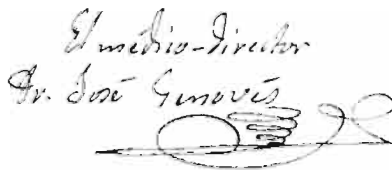 El médico-director
Dr. José Genovés